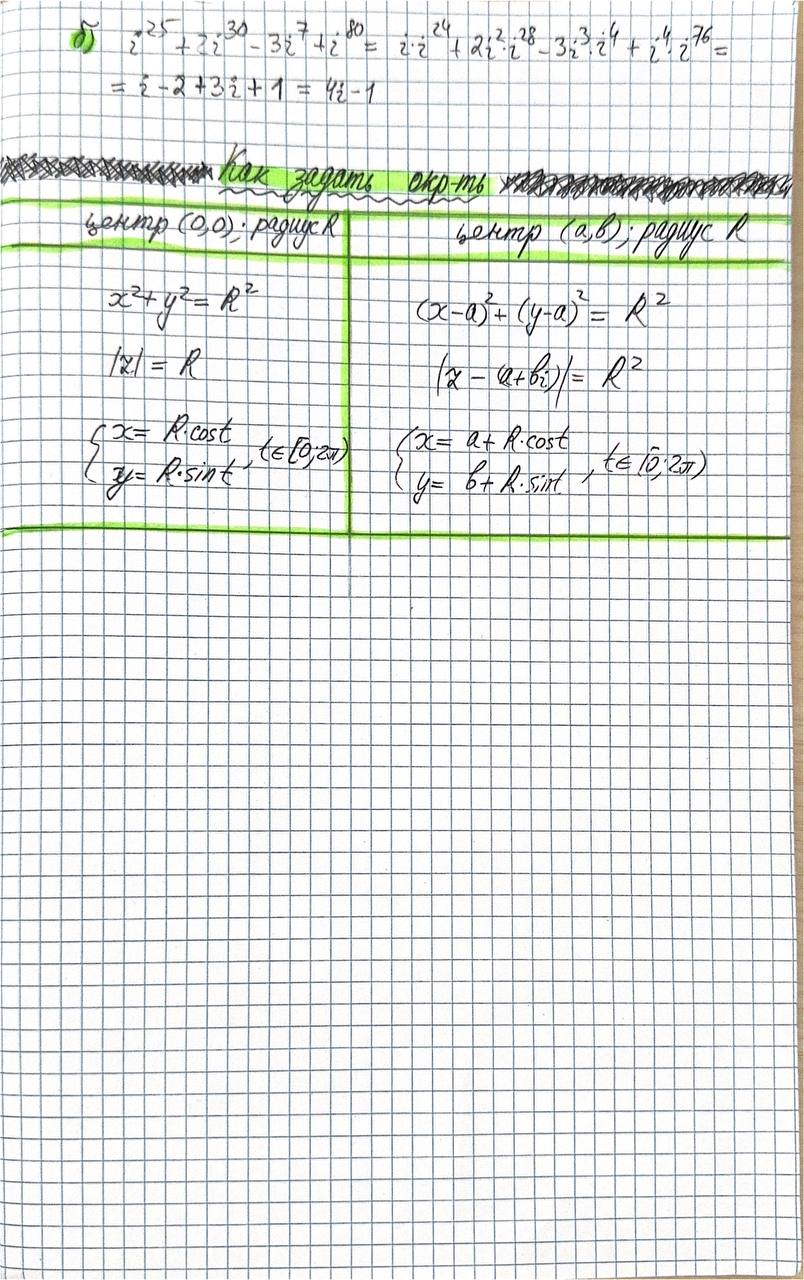 б) i²⁵ + 2i³⁰ - 3i⁷ + i⁸⁰ = i·i²⁴ + 2i²·i²⁸ - 3i³·i⁴ + i⁴·i⁷⁶ =
= i - 2 + 3i + 1 = 4i - 1
Как задать окр-ть
центр (0,0); радиус R
x² + y² = R²
|z| = R
{ x = R·cost
y = R·sint , t∈[0;2π)
центр (a,b); радиус R
(x-a)² + (y-a)² = R²
|z - (a+bi)| = R²
{ x = a + R·cost
y = b + R·sint , t∈[0;2π)